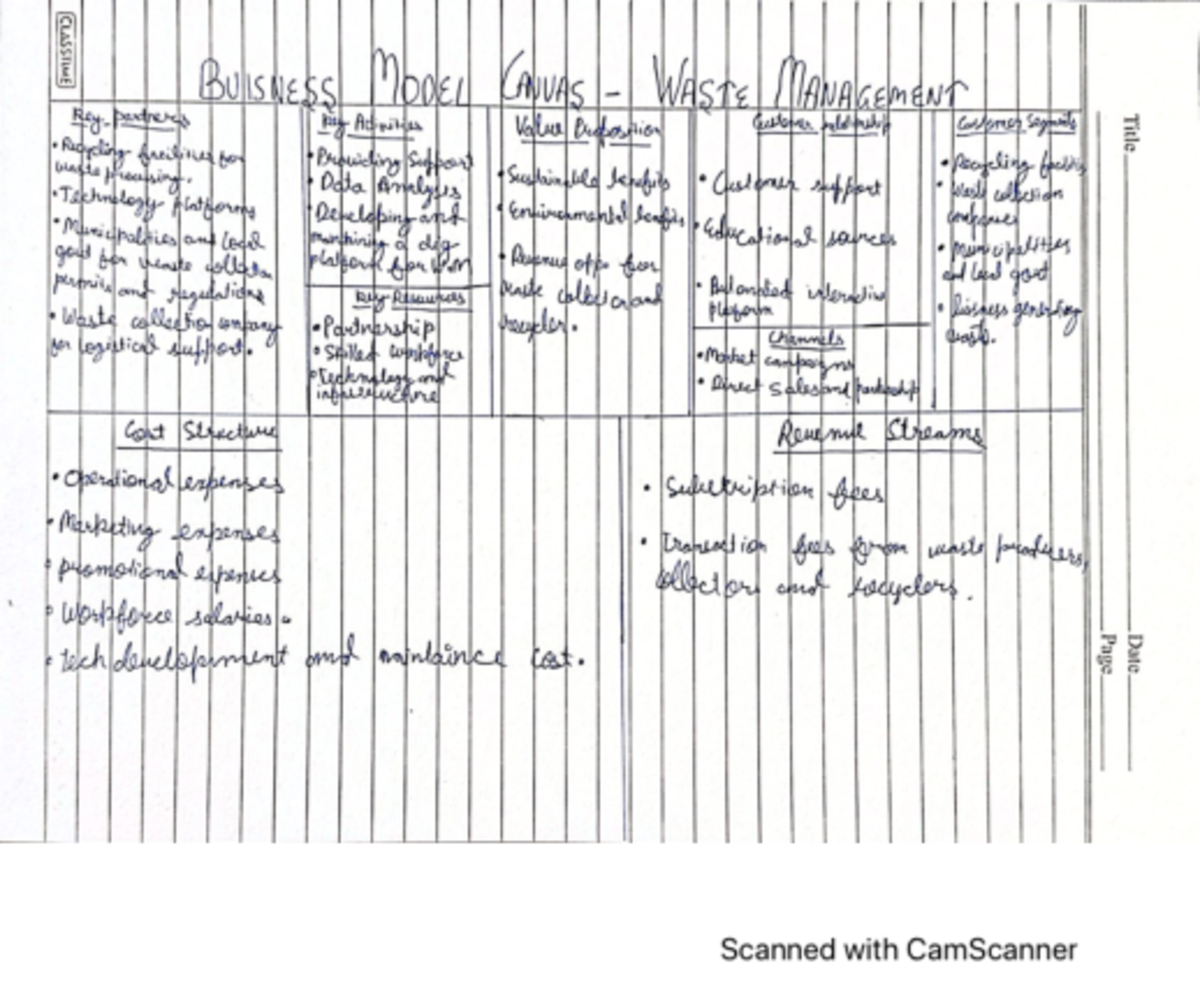 CLASSTIME
BUISNESS MODEL CANVAS - WASTE MANAGEMENT
Key partners
• Recycling facilities for
waste processing.
• Technology platforms
• Municipalities and local
govt for waste collection
permits and regulations
• Waste collection company
for logistical support.
Key Activities
• Providing Support
• Data Analyses
• Developing and
of dig
platform for WM
Key Resources
• Partnership
• Skilled workforce
• Technology and
infrastructure
Value Proposition
• Sustainable benefits
• Environmental benefits
• Revenue opp. for
waste collector and
recycler.
Customer relationship
• Customer support
• Educational sources
• Automated interactive
platform
Channels
• Market campaigns
• Direct Sales and partnership
Customer Segments
• Recycling
• Waste collection
companies
• Municipalities
and local govt
• Buisness generating
waste.
Cost Structure
• Operational expenses
• Marketing expenses
• promotional expenses
• Workforce salaries.
• tech development and maintaince cost.
Revenue Streams
• Subscription fees
• Transaction fees from waste producers,
collectors and recyclers.
Title
Date
Page
Scanned with CamScanner